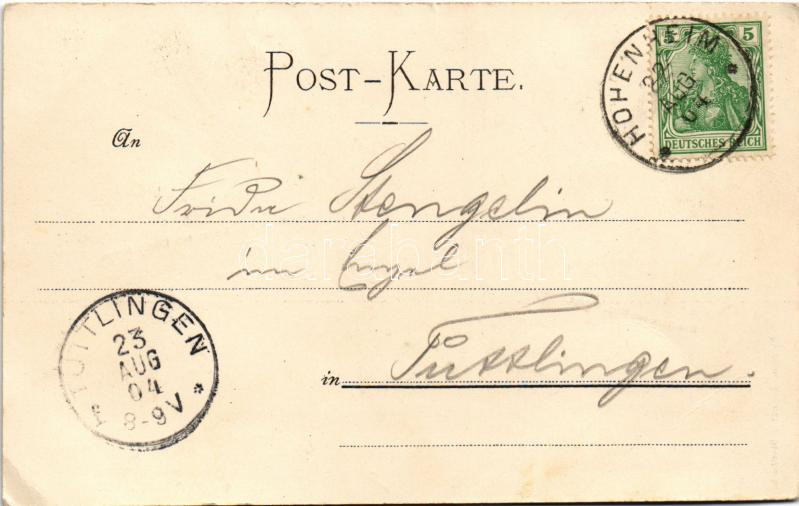 POST-KARTE.
5 5
DEUTSCHES REICH
HOHENHEIM
22
AUG
04
An
Fride Stengelin
im Engel
in Tuttlingen.
TUTTLINGEN
23
AUG
04
8-9V
darabanth